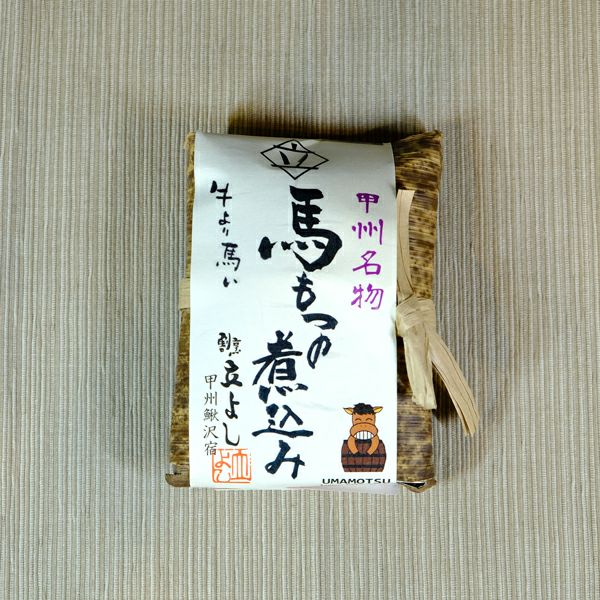 立
甲州名物
馬もつの
煮込み
牛より馬い
割烹 立よし
甲州鰍沢宿
立よし
UMAMOTSU